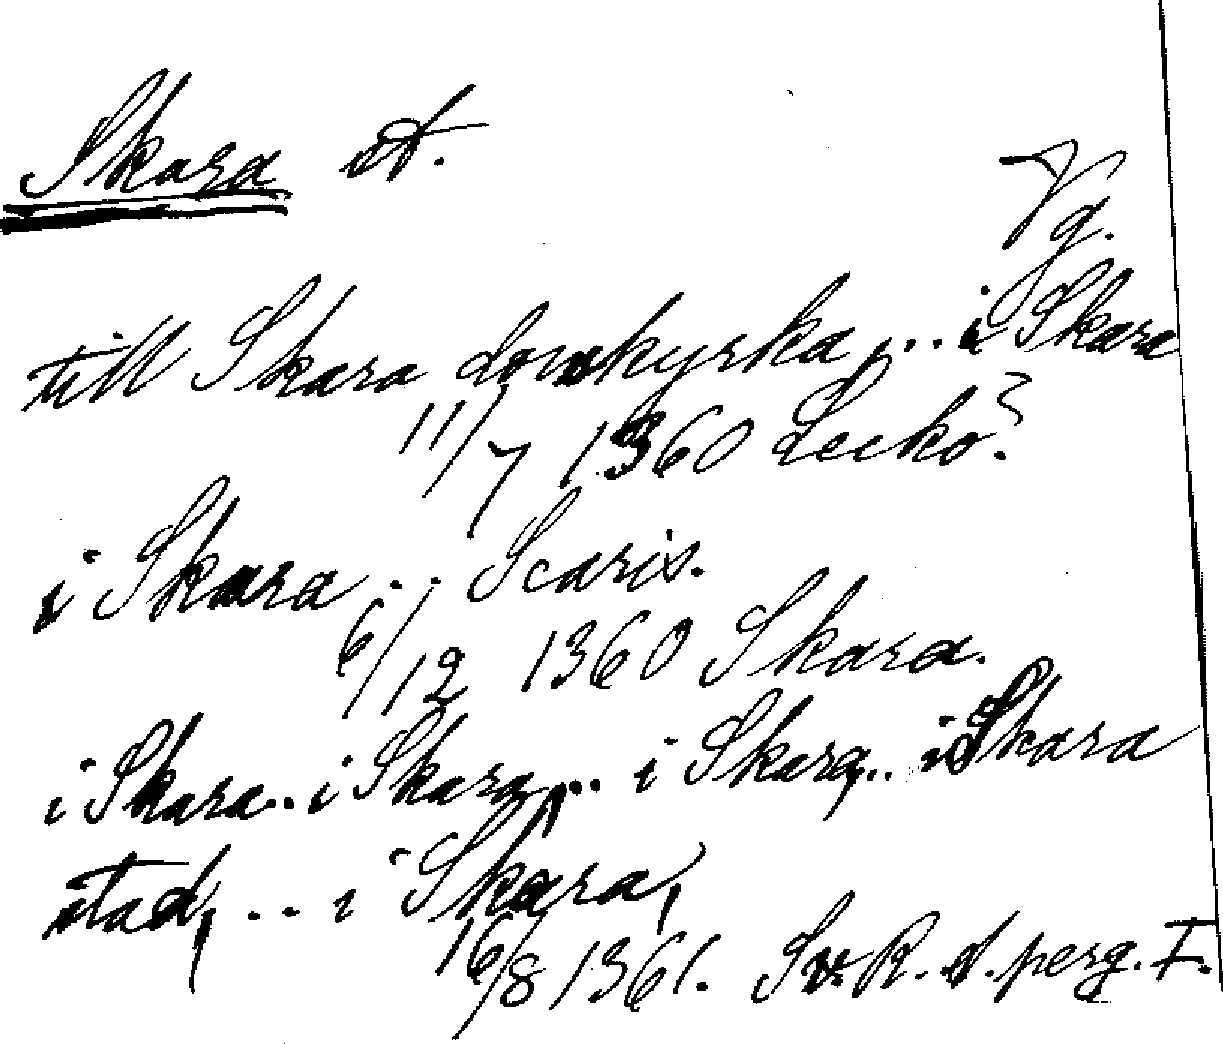 Skara st.
Vg.
till Skara domkyrka, ... i Skara
11/7 1360 Lecko?
i Skara ... Scaris.
6/12 1360 Skara.
i Skara .. i Skara, ... i Skara, .. i Skara
stad, ... i Skara,
16/8 1361. Sv. R. A. perg. I.